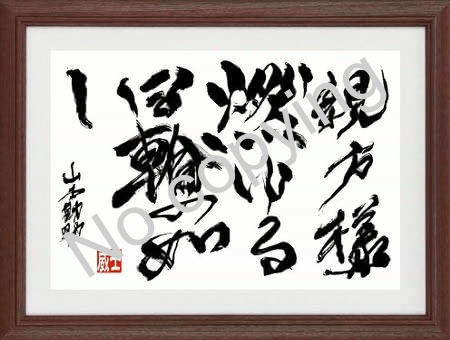 親方様
燃ゆる
日輪の如
し
山本勘助
No copying